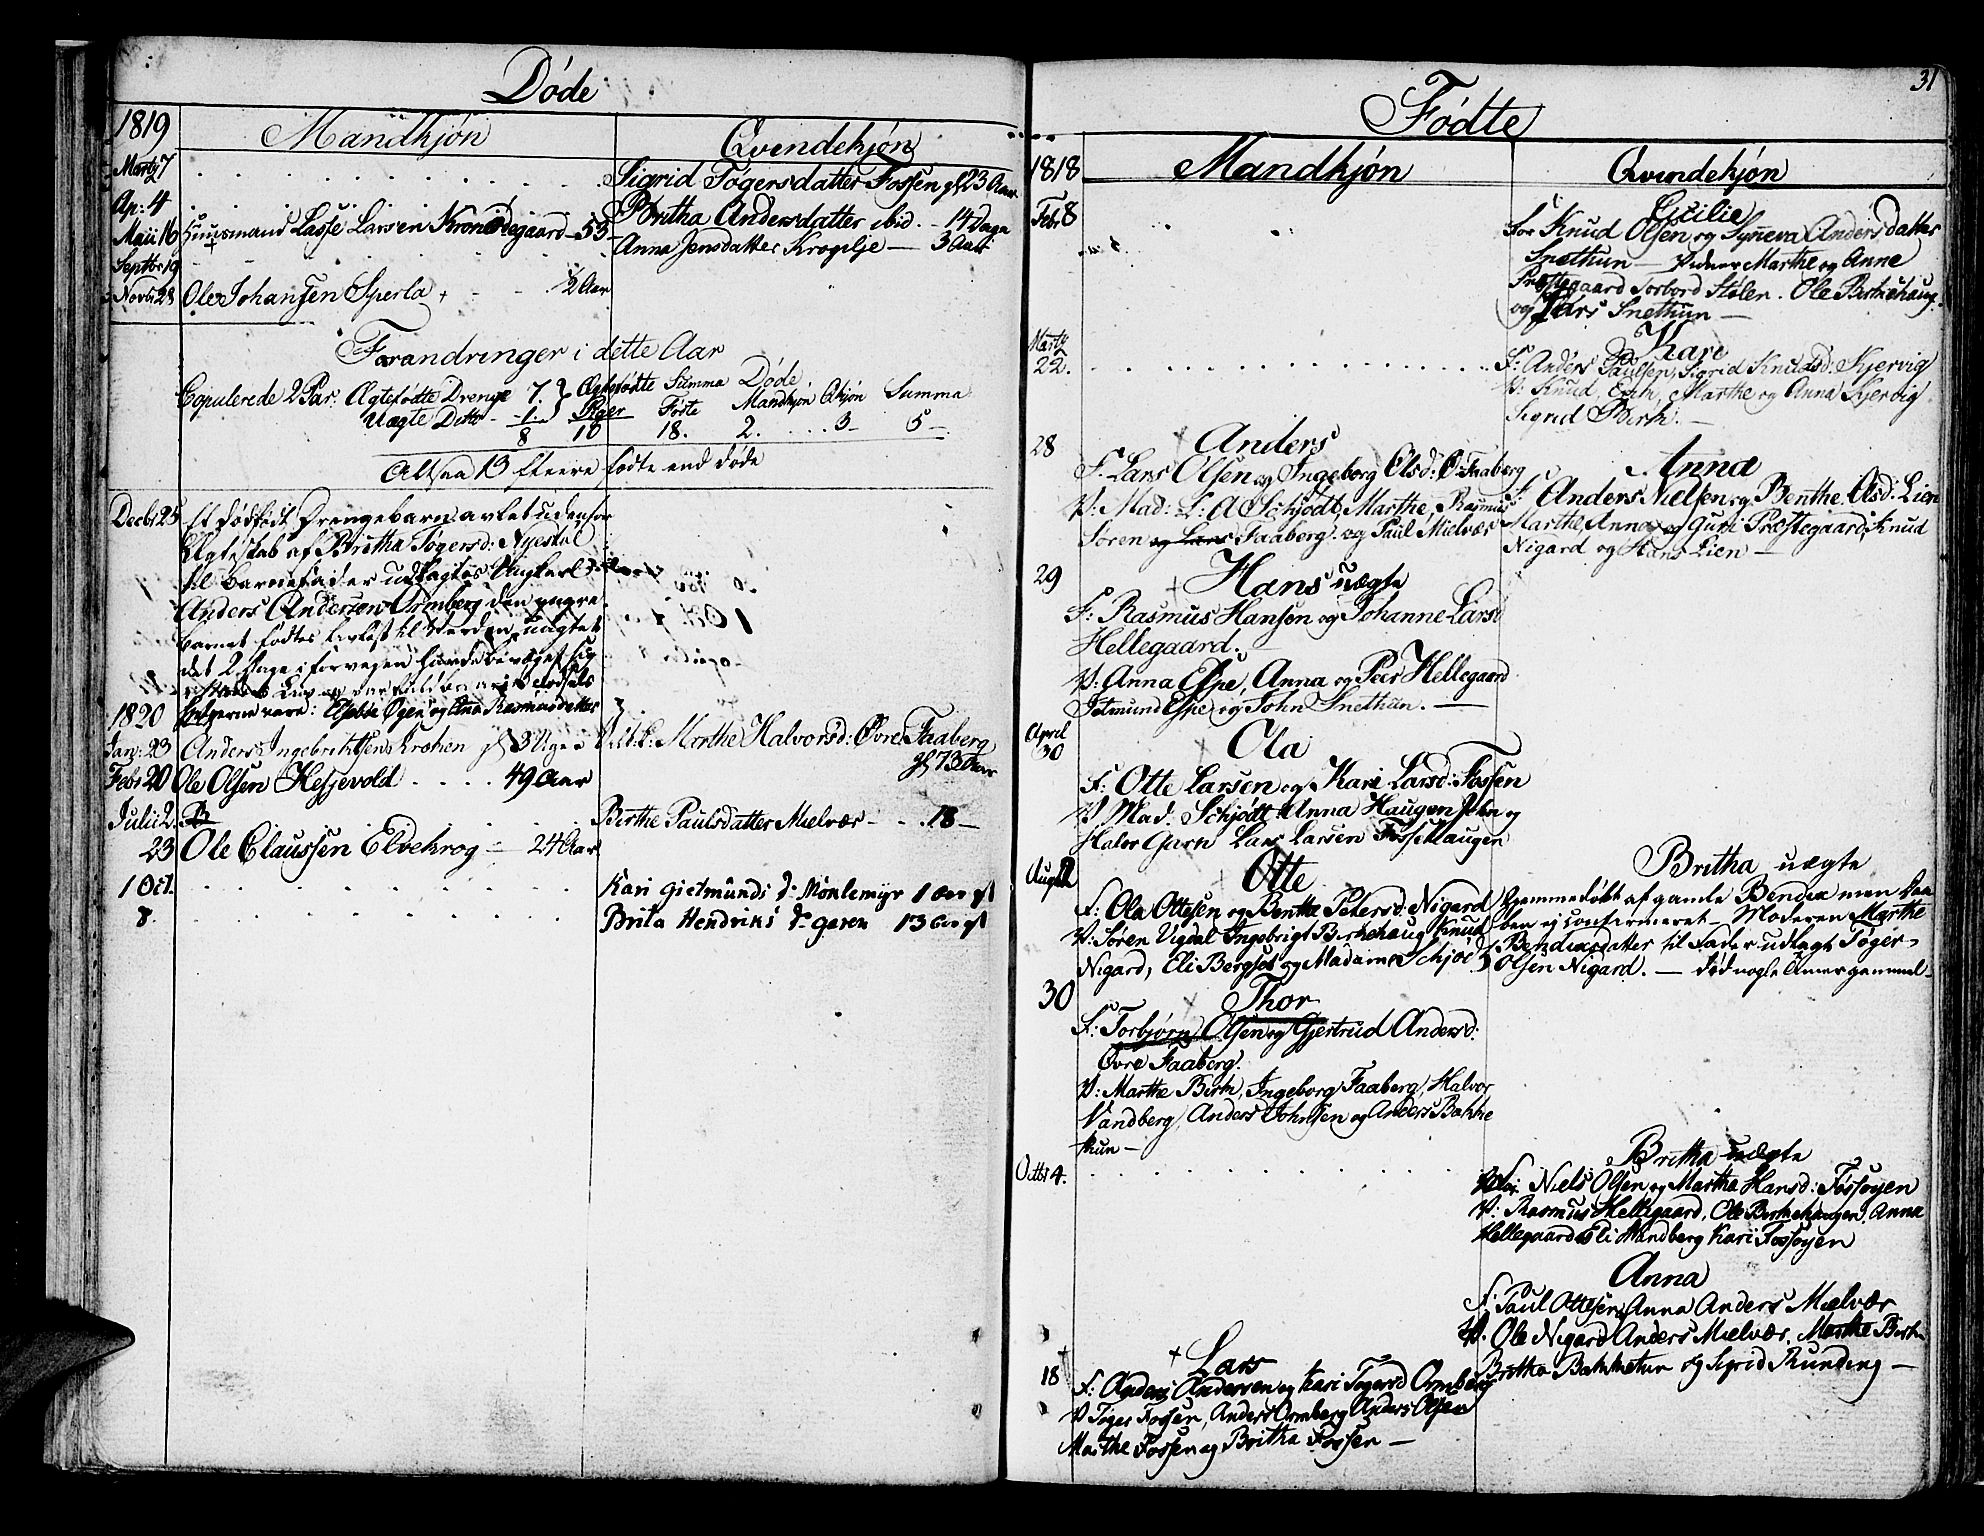 Døde
1819
Mandkjøn
Qvindekjøn
Marty 7
Sigrid Togersdatter Fossen gl 23 Aar
Ap: 4
Britha Andersdatter ibid. - 14 Dage
Maii 16 Huusmand Lasse Larsen Krondegaard - 53 -
Anna Jensdatter Krogilje — 3 Aar
Septbr 19
Novbr 28 Ole Johansen Sperla + - - ½ Aar
Forandringer i dette Aar
Copulerede 2 Par. Ægtefødte Drenge 7. Ægtefødte Summa Døde
Uægte Ditto - 1. Piger Føtte Mandkjøn Qkjøn Summa
8 10 18. 2. . . . . 3 - 5 -
Altsaa 13 fleere fødte end døde
Decbr 25 Et dødfødt Drengebarn avlet udenfor
Ægteskab af Britha Togersd: Nyestøl
til barnefader udlagdes Ungkarl
Anders Anderson Ormberg den yngre.
barnet fødtes livløst til Verden, uagtet
det 2 Dage i forvejen
1820
Elsebe Øyen og Ana Rasmusdatter
Jan: 23 Anders Ingebrihtsens Krohen gl 3 Uger
Marthe Halvorsd: Øvre Faaberg
gl 73 Aar
Febr 20 Ole Olsen Hesjevold . . . . 49 Aar
Julii 2.
Berthe Paulsdatter Mielvær - . . 18 -
23 Ole Claussen Elvekrog - 24 Aar
1 Oct.
Kari Gietmunds d- Mønlemyr 1 aar gl
8.
Brita Hendriks d- garen 13 aar gl
31
Fødte
1818
Mandkjøn
Qvindekjøn
Febr 8
Cicilie
For: Knud Olsen og Syneva Andersdatter
Snethun — Vidner Marthe og Anne
Prestegaard Torbord Stølen. Ole Birkehaug
og Lars Snethun —
Marty
22.
Kari
F: Anders Paulsen, Sigrid Knudsd: Kjervig
V: Knud, Erik, Marthe og Anna Kjervig
Sigrid Birk. —
28
Anders
F. Lars Olsen og Ingeborg Olsd: Ø: Faaberg
V: Mad: L: A Schjødt, Marthe, Rasmus
Soren og Lars Faaberg. og Paul Mielvær
Anna
F. Anders Nielsen og Benthe Olsd: Lien
Marthe, Anna og Guri Prestegaard, Knud
Nigard og Hans Lien —
29
+ Hans uægte
F: Rasmus Hansen og Johanne Larsd
Hellegaard. —
V: Anna Espe, Anna og Peer Hellegaard
Jetmund Espe og John Snethun. —
April
30
Ola
F: Otte Larsen og Kari Larsd: Fossen
V Mad. Schjøtt Anna Haugen John og
Halvor Garn Lars Larsen Fossehaugen
Aug 2
Otte
F: Ola Ottesen og Benthe Petersd: Nigard
V: Søren Vigdal Ingebrigt Birkehaug Knud
Nigard, Eli Bergset og Madame Schjødt
Britha uægte
hjemmedøbt af gamle Bendix men Daa
ben ej confirmeret - Moderen Marthe
Bendixsdatter til Fader udlagt Tøger
Olsen Nigard. — død nogle Timer gammel -
30
Thor
F: Torbjørn Olsen og Gjertrud Andersd:
Øvre Faaberg.
V: Marthe Birk, Ingeborg Faaberg, Halvor
Vandberg, Anders Johnsen og Anders Bakke
thun —
Octbr 4.
Britha uægte
Niels Olsen og Martha Hansd: Fossøyen
V: Rasmus Hellegaard, Ole Birkehaugen, Anna
Hellegaard Eli Wandberg Kari Fossøyen
Anna
F: Paul Ottesen, Anna Anders Mielvær
V. Ole Nigard Anders Mielvær, Marthe Birk
Britha Bakketun og Sigrid Runding —
18
+ Lars
F: Anders Andersen og Kari Togersd Ormberg
V Tøger Fossen, Anders Ormberg Anders Olsen
Marthe Fossen og Britha Fossen —